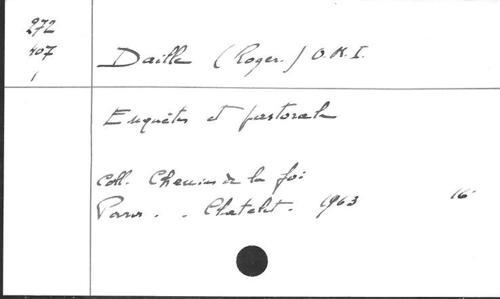 272
407
1
Daille (Roger.) O.M.I.
Enquêtes et pastorale
Coll. Chemins de la foi
Paris. . Chatelet. 1963 16°